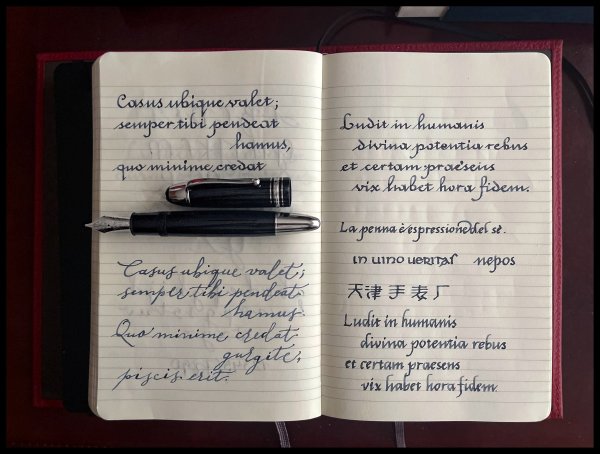 Casus ubique valet;
semper tibi pendeat
hamus,
quo minime credat
Casus ubique valet;
semper tibi pendeat
hamus.
Quo minime credat
gurgite,
piscis erit.
Ludit in humanis
divina potentia rebus
et certam praesens
vix habet hora fidem.
La penna è espressione del sè.
in uino ueritas nepos
天津手表厂
Ludit in humanis
divina potentia rebus
et certam praesens
vix habet hora fidem